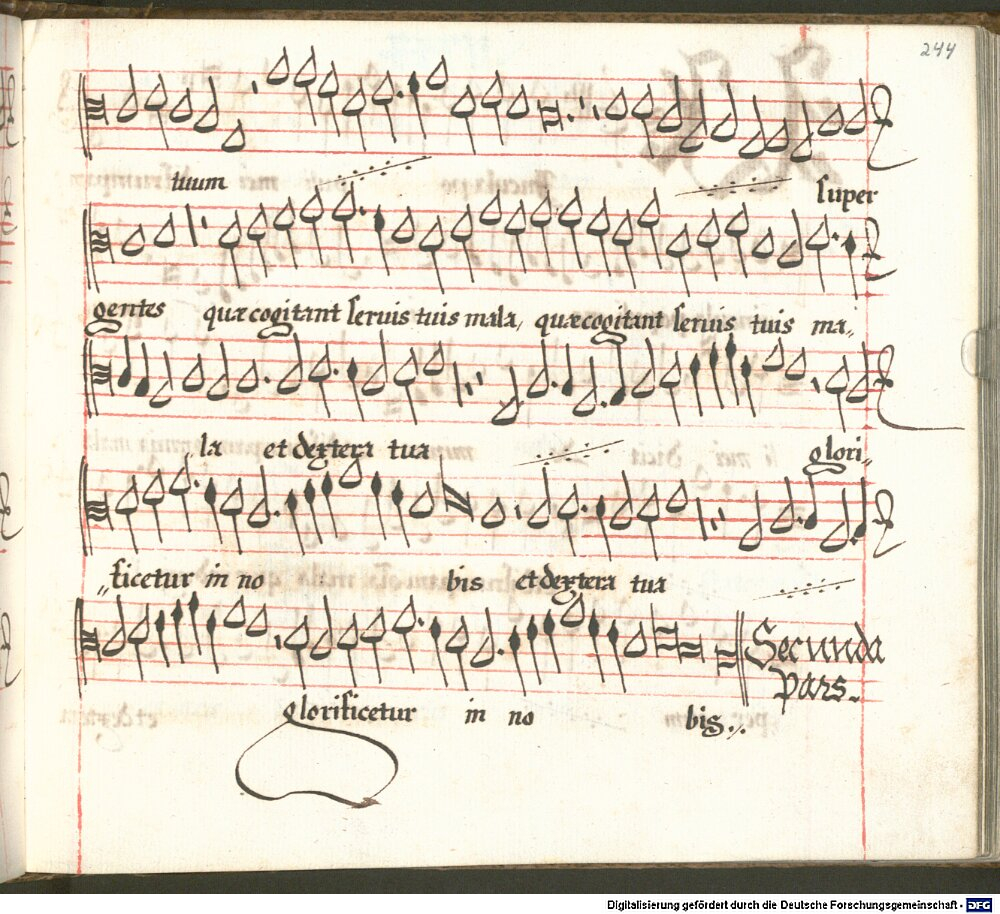 244
tuum super
gentes quæ cogitant seruis tuis mala, quæ cogitant seruis tuis ma„
„la et dextera tua glori„
„ficetur in no bis et dextera tua
Secunda
pars.
glorificetur in no bis.
Digitalisierung gefördert durch die Deutsche Forschungsgemeinschaft - DFG